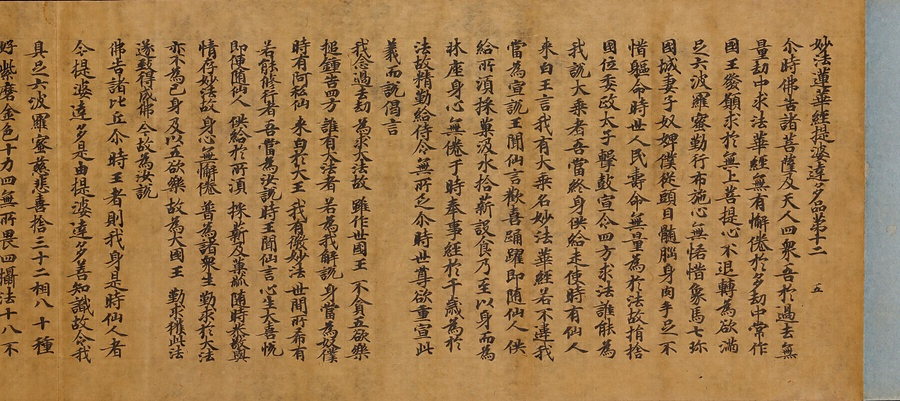 妙法蓮華經提婆達多品第十二　五
尒時佛告諸菩薩及天人四衆吾於過去無
量劫中求法華經無有懈倦於多劫中常作
國王發願求於無上菩提心不退轉為欲滿
足六波羅蜜勤行布施心無悋惜象馬七珎
國城妻子奴婢僕從頭目髓腦身肉手足不
惜軀命時世人民壽命無量為於法故捐捨
國位委政太子擊鼓宣令四方求法誰能為
我說大乘者吾當終身供給走使時有仙人
來白王言我有大乘名妙法華經若不違我
當為宣說王聞仙言歡喜踊躍即随仙人供
給所湏採菓汲水拾薪設食乃至以身而為
牀座身心無倦于時奉事經於千歲為於
法故精勤給侍令無所乏尒時世尊欲重宣此
義而說偈言
我念過去劫　為求大法故　雖作世國王　不貪五欲樂
搥鍾告四方　誰有大法者　若為我解說　身當為奴僕
時有阿私仙　來白於大王　我有微妙法　世間所希有
若能修行者　吾當為汝說　時王聞仙言　心生大喜恱
即便随仙人　供給於所湏　採薪及菓蓏　随時恭敬與
情存妙法故　身心無懈倦　普為諸衆生　勤求於大法
亦不為己身　及以五欲樂　故為大國王　勤求獲此法
遂致得成佛　今故為汝說
佛告諸比丘尒時王者則我身是時仙人者
今提婆達多是由提婆達多善知識故令我
具足六波羅蜜慈悲喜捨三十二相八十種
好紫磨金色十力四無所畏四攝法十八不